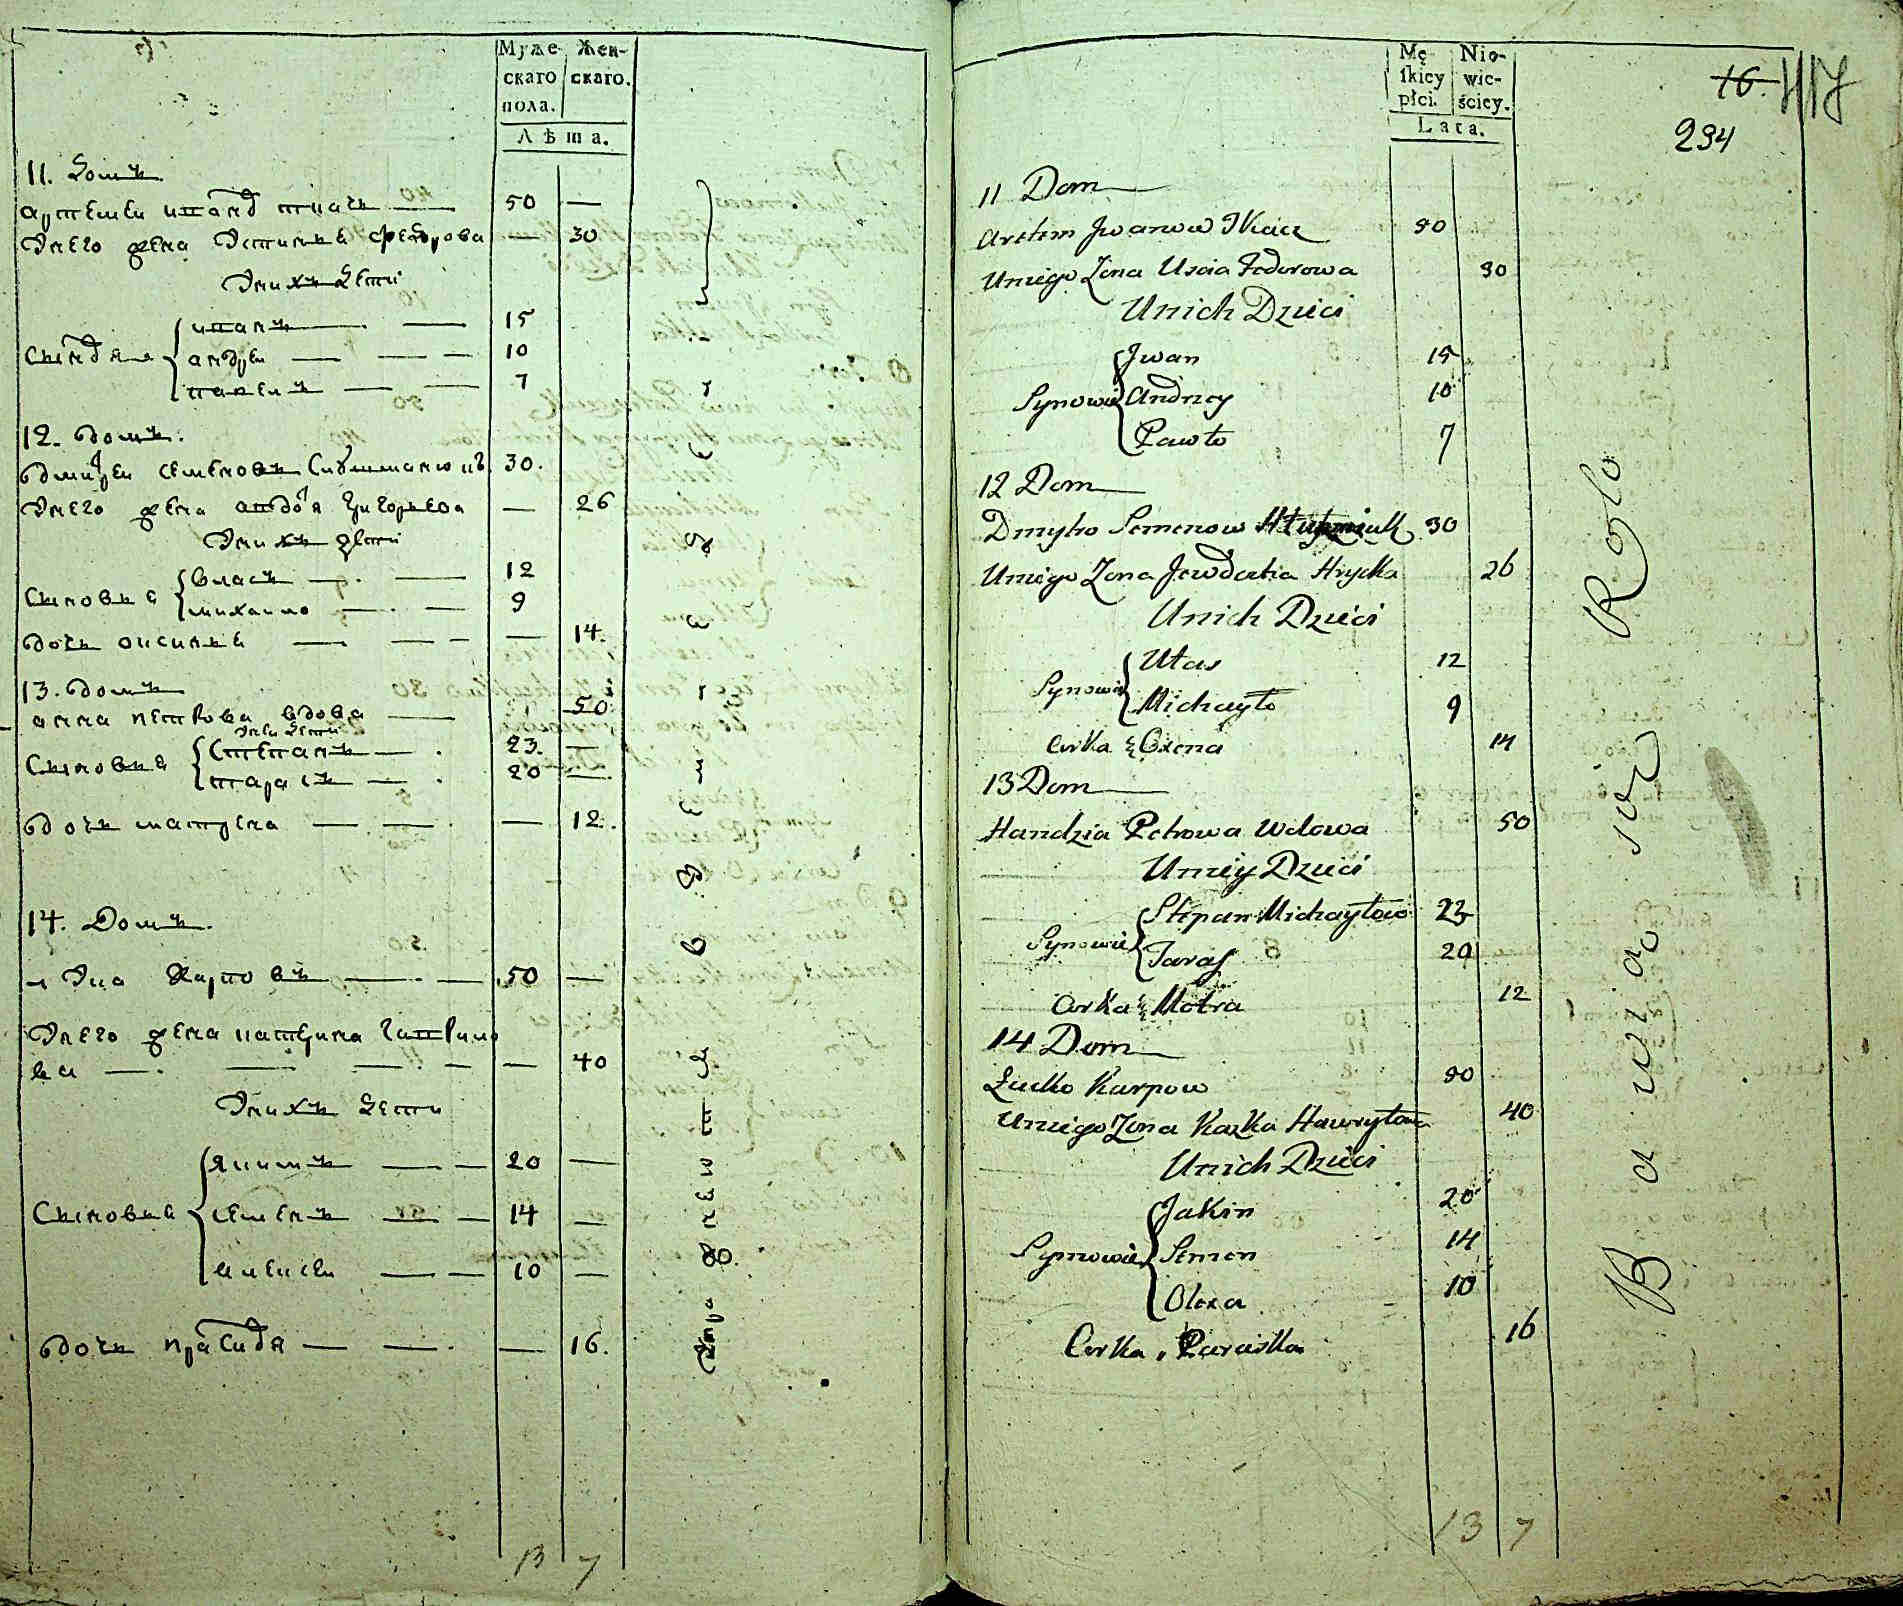 Муже-
скаго
пола.
Жен-
скаго.
Лѣта.
11. Домъ
артемеи иванов ткачъ — 50 —
Унего жена Устинья федорова — 30
Унихъ дети
Сыновья
иванъ — 15
андреи — 10
павелъ — 7
12. домъ.
дмитреи семеновъ 30.
Унего жена авдотя григорьева — 26
Унихъ дети
Сыновья
власъ — 12
михаило — 9
дочь оксинья — 14.
13. домъ
анна петрова вдова — 50
Унеи дети
Сыновья
Степанъ — 23. —
тарасъ — 20 —
дочь матрена — 12.
14. Домъ.
Карповъ — 50 —
Унего жена катерина гаврило
ва — 40
Унихъ дети
Сыновья
якимъ — 20 —
семенъ — 14 —
алексеи — 10 —
дочь прасковя — 16.
13 7
Mę-
skiey
płci.
Nie-
wie-
ściey.
Lata.
16. 117
294
11 Dom
Artem Jwanow Tkacz 50
Uniego Zona Uscia Fedorowa 30
Unich Dzieci
Synowie
Jwan 15
Andrzey 10
Pawło 7
12 Dom
Dmytro Semenow 30
Uniego Zona Jewdochia Hrycka 26
Unich Dzieci
Synowie
Ułas 12
Michayło 9
Curka Oxena 14
13 Dom
Handzia Petrowa Wdowa 50
Uniey Dzieci
Synowie
Stepan Michayłow 23
Taras 20
Curka Motra 12
14 Dom
Karpow 50
Uniego Zona Kaśka Hawryłowa 40
Unich Dzieci
Synowie
Jakim 20
Semen 14
Olexa 10
Curka Paraska 16
13 7